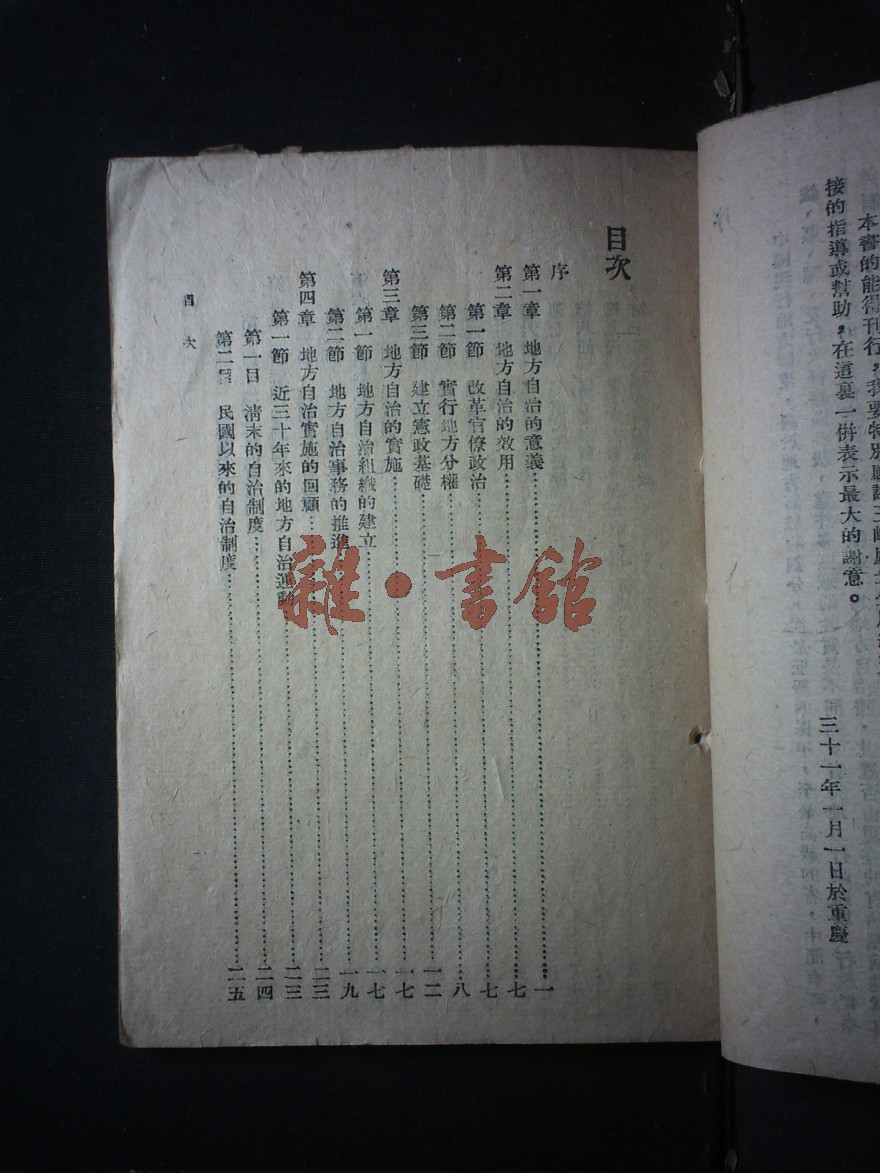 接的指導或幫助，在這裏一併表示最大的謝意。
三十一年一月一日於重慶
目次
序
第一章 地方自治的意義……一
第二章 地方自治的效用……七
第一節 改革官僚政治……七
第二節 實行地方分權……八
第三節 建立憲政基礎……一二
第三章 地方自治的實施……一七
第一節 地方自治組織的建立……一七
第二節 地方自治事務的推進……一九
第四章 地方自治實施的回顧……二三
第一節 近三十年來的地方自治運動……二三
第一目 清末的自治制度……二四
第二目 民國以來的自治制度……二五
目次
雜·書館